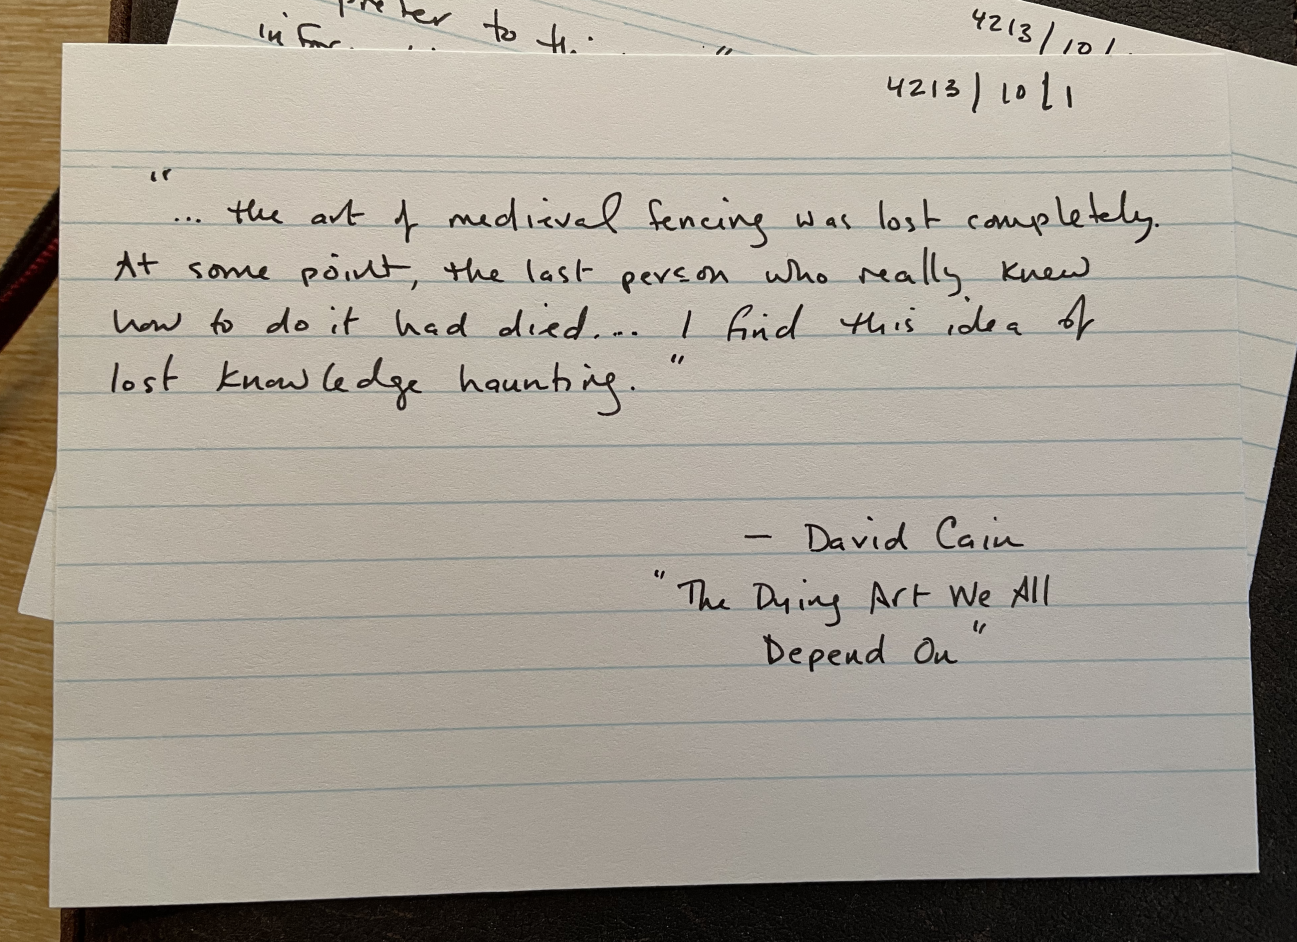 prefer to
4213/10/
4213/10/1
"... the art of medieval fencing was lost completely.
At some point, the last person who really knew
how to do it had died.... I find this idea of
lost knowledge haunting."
— David Cain
"The Dying Art We All
Depend On"